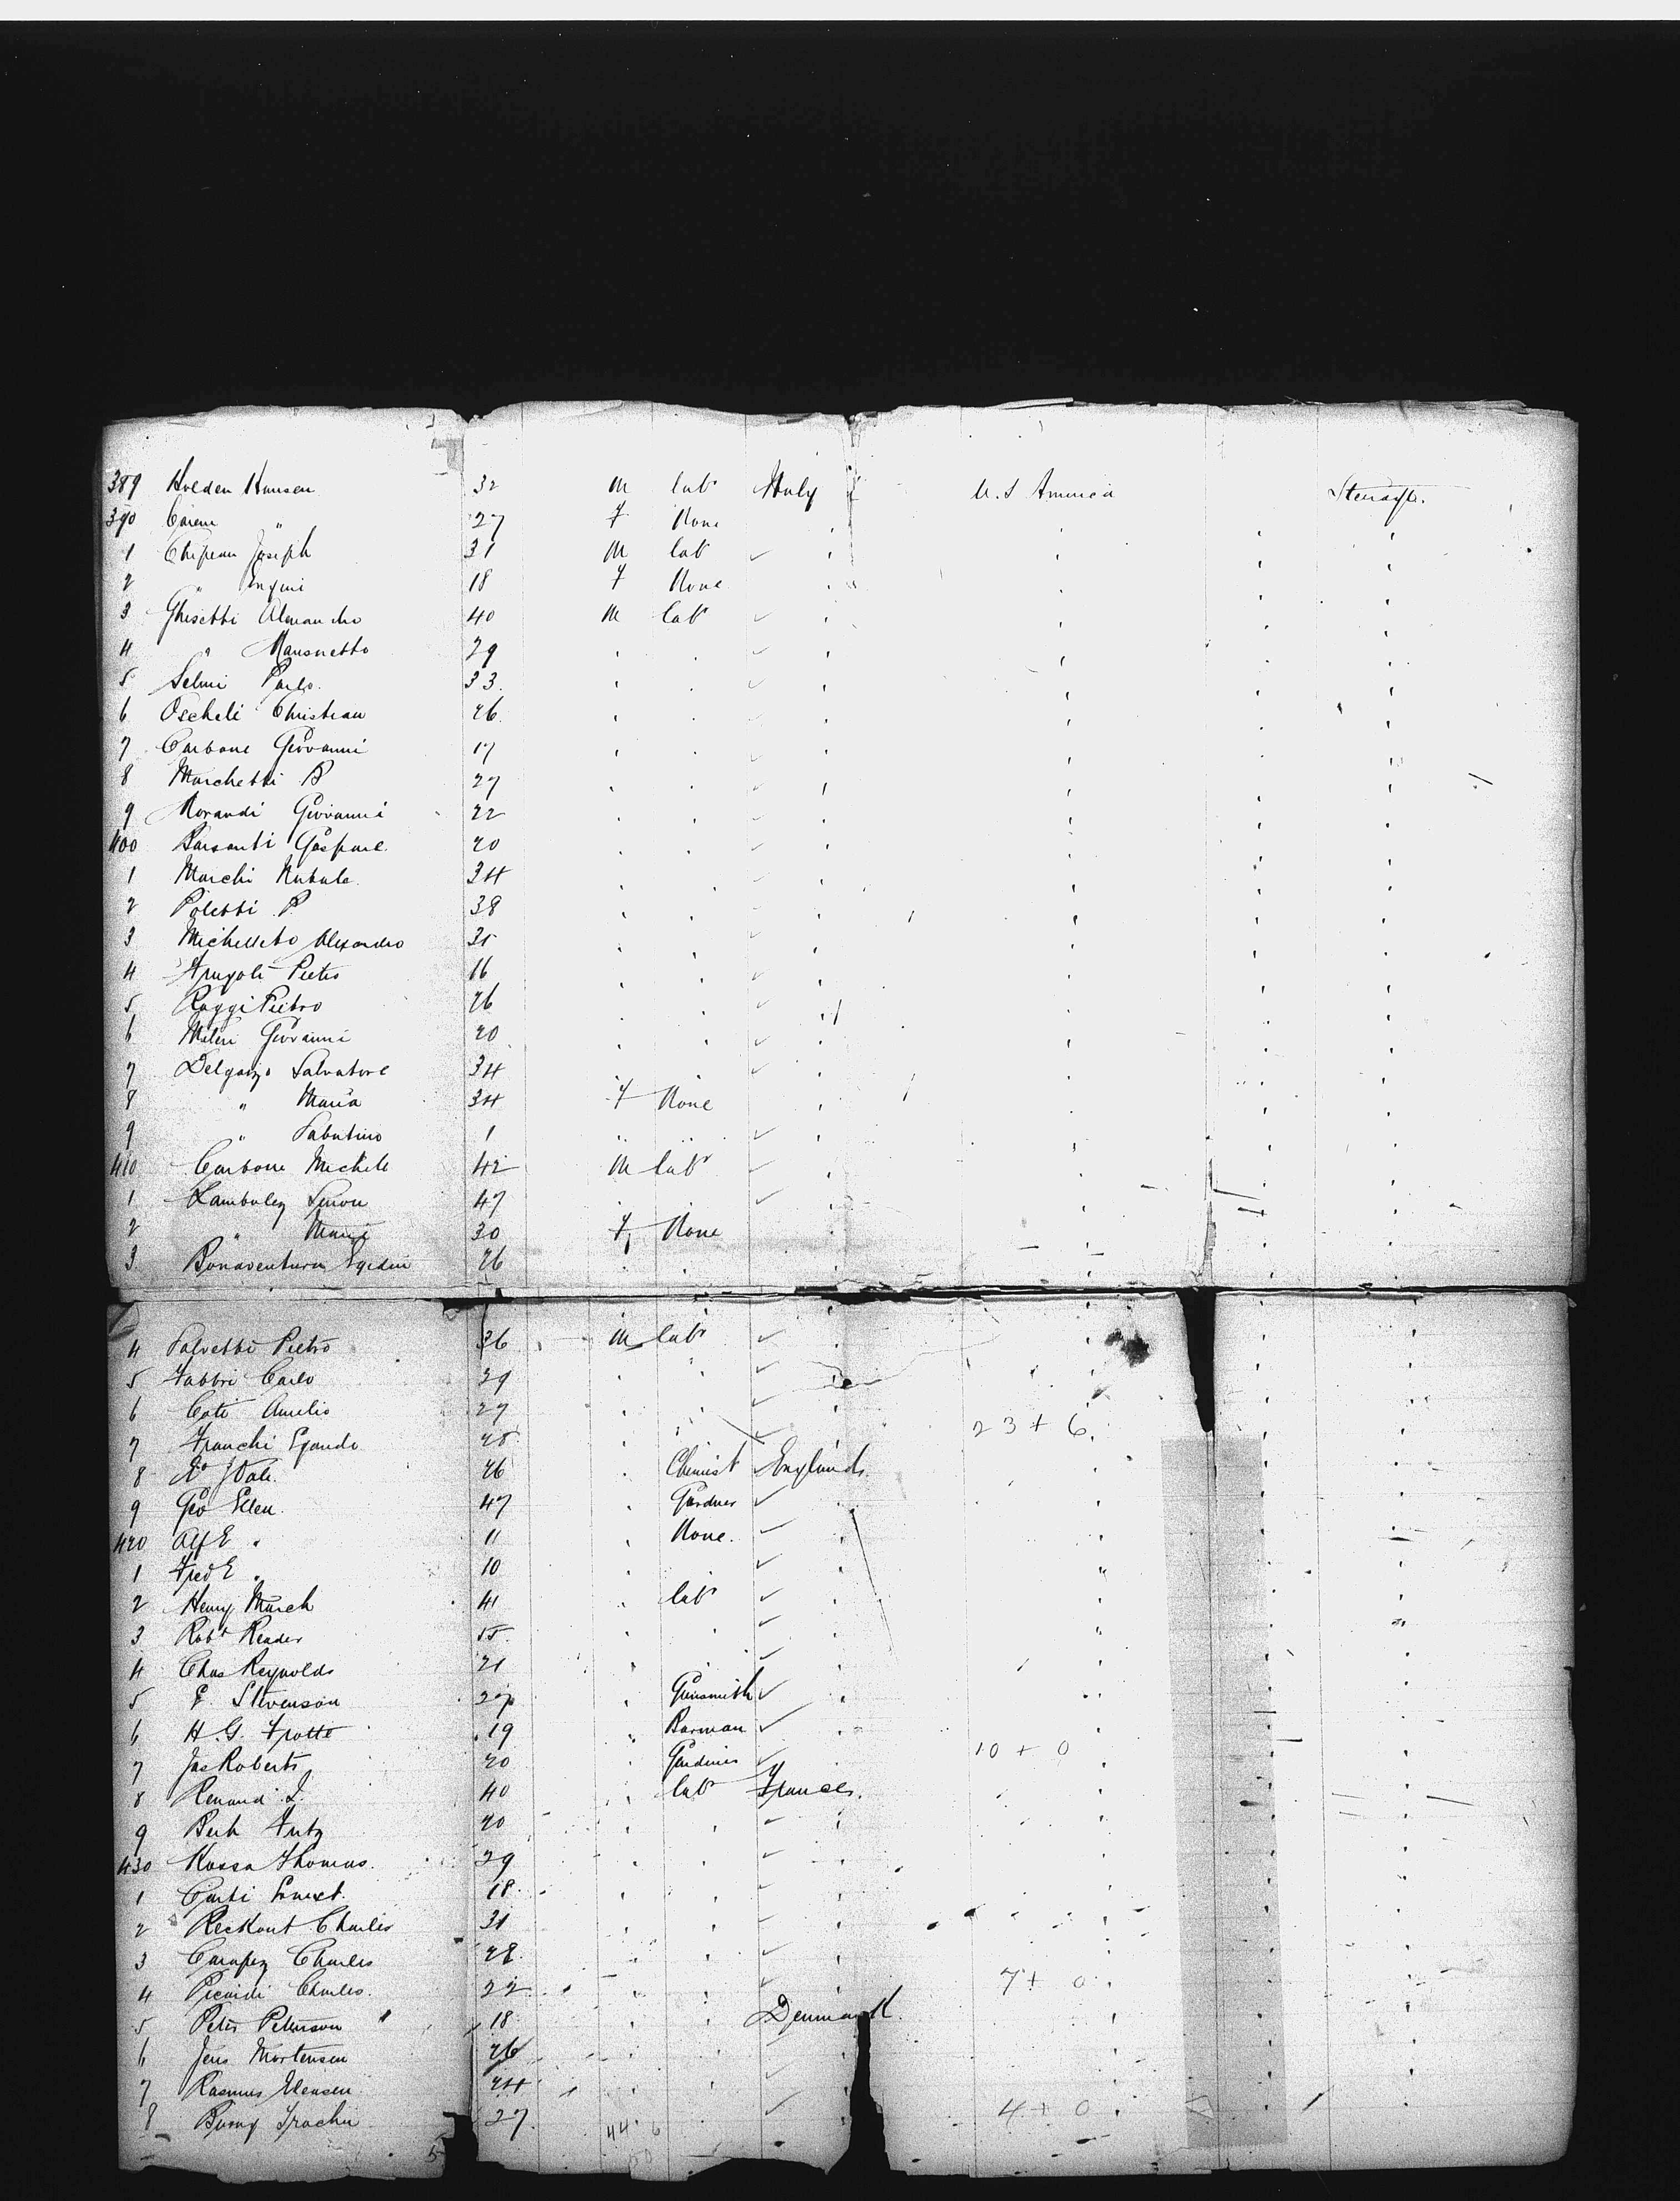 389 Holden Hansen 32 M lab Italy U.S America Steerage.
390 Caren " 27 f None
1 Chipeau Joseph 31 M lab
2 " 18 f None
3 Ghisetti 40 M lab
4 " Mansuetto 29
5 Selmi Paolo 33.
6 Oscheli Christian 26
7 Carbone Giovanni 17
8 Marchetti B 27
9 Morandi Giovanni 22
400 Barsanti Gaspare 20
1 Marchi 34
2 Poletti P. 38
3 Michelleto 35
4 Frugoli Pietro 16
5 Raggi Pietro 26
6 Milei Giovanni 20
7 Salvatore 34
8 " Maria 34 f None
9 " Sabatino 1 " "
410 Carbone Michele 42 M lab
1 Lamboley Simon 47
2 " Marie 30 f None
3 Bonaventura 26
4 Salvetti Pietro 36 M lab
5 Fabbri Carlo 39
6 Amelio 27
7 Franchi 25 23 + 6
8 26 Chemist England
9 Geo Ellen 47 Gardner
420 Alf E " 11 None.
1 Fred E " 10
2 Henry March 41 lab
3 Robt Reader 55
4 Chas Reynolds 21
5 E. Stevenson 27 Gunsmith
6 H. G. Trotte 19 Barman
7 Jas Roberts 20 Gardiner 10 + 0
8 Renaud J. 40 lab France.
9 Fritz 20
430 Kossa Thomas. 29
1 Ernest 18
2 Reckout Charles 31
3 Charles 28.
4 Picardi Charles. 22 7 + 0
5 Peter Peterson 18 Denmark.
6 Jens Mortensen 26
7 Rasmus 24
8 27. 4 + 0
44 6
50
5